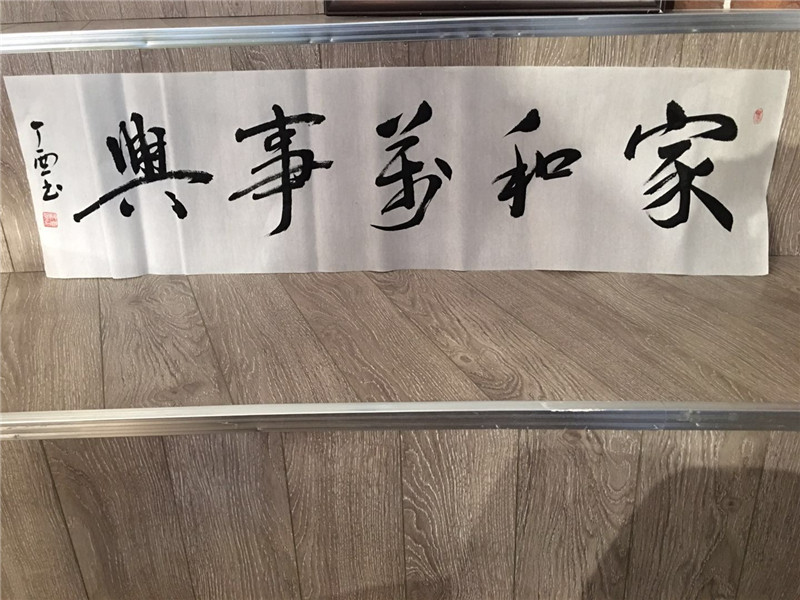 家和萬事興
丁酉书